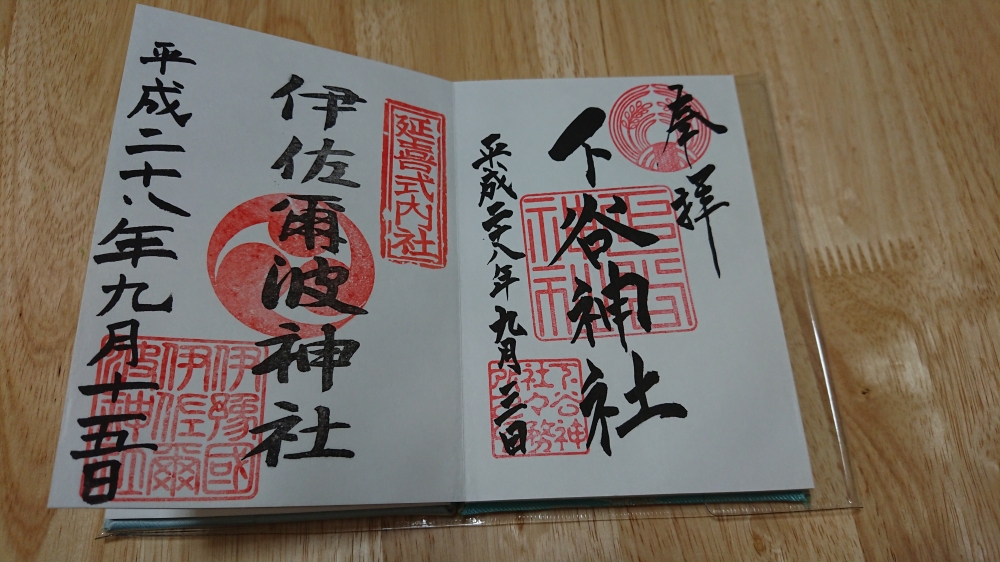 奉拝
下谷神社
平成二十八年九月三日
下谷神
社々務
延喜式内社
伊佐爾波神社
平成二十八年九月十五日
伊豫國
伊佐爾
波神社